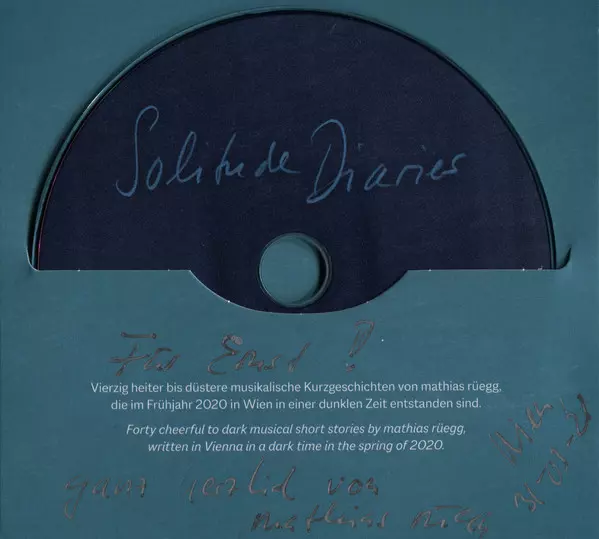 Solitude Diaries
Für Ernst!
Vierzig heiter bis düstere musikalische Kurzgeschichten von mathias rüegg,
die im Frühjahr 2020 in Wien in einer dunklen Zeit entstanden sind.
Forty cheerful to dark musical short stories by mathias rüegg,
written in Vienna in a dark time in the spring of 2020.
ganz herzlich von
mathias rüegg